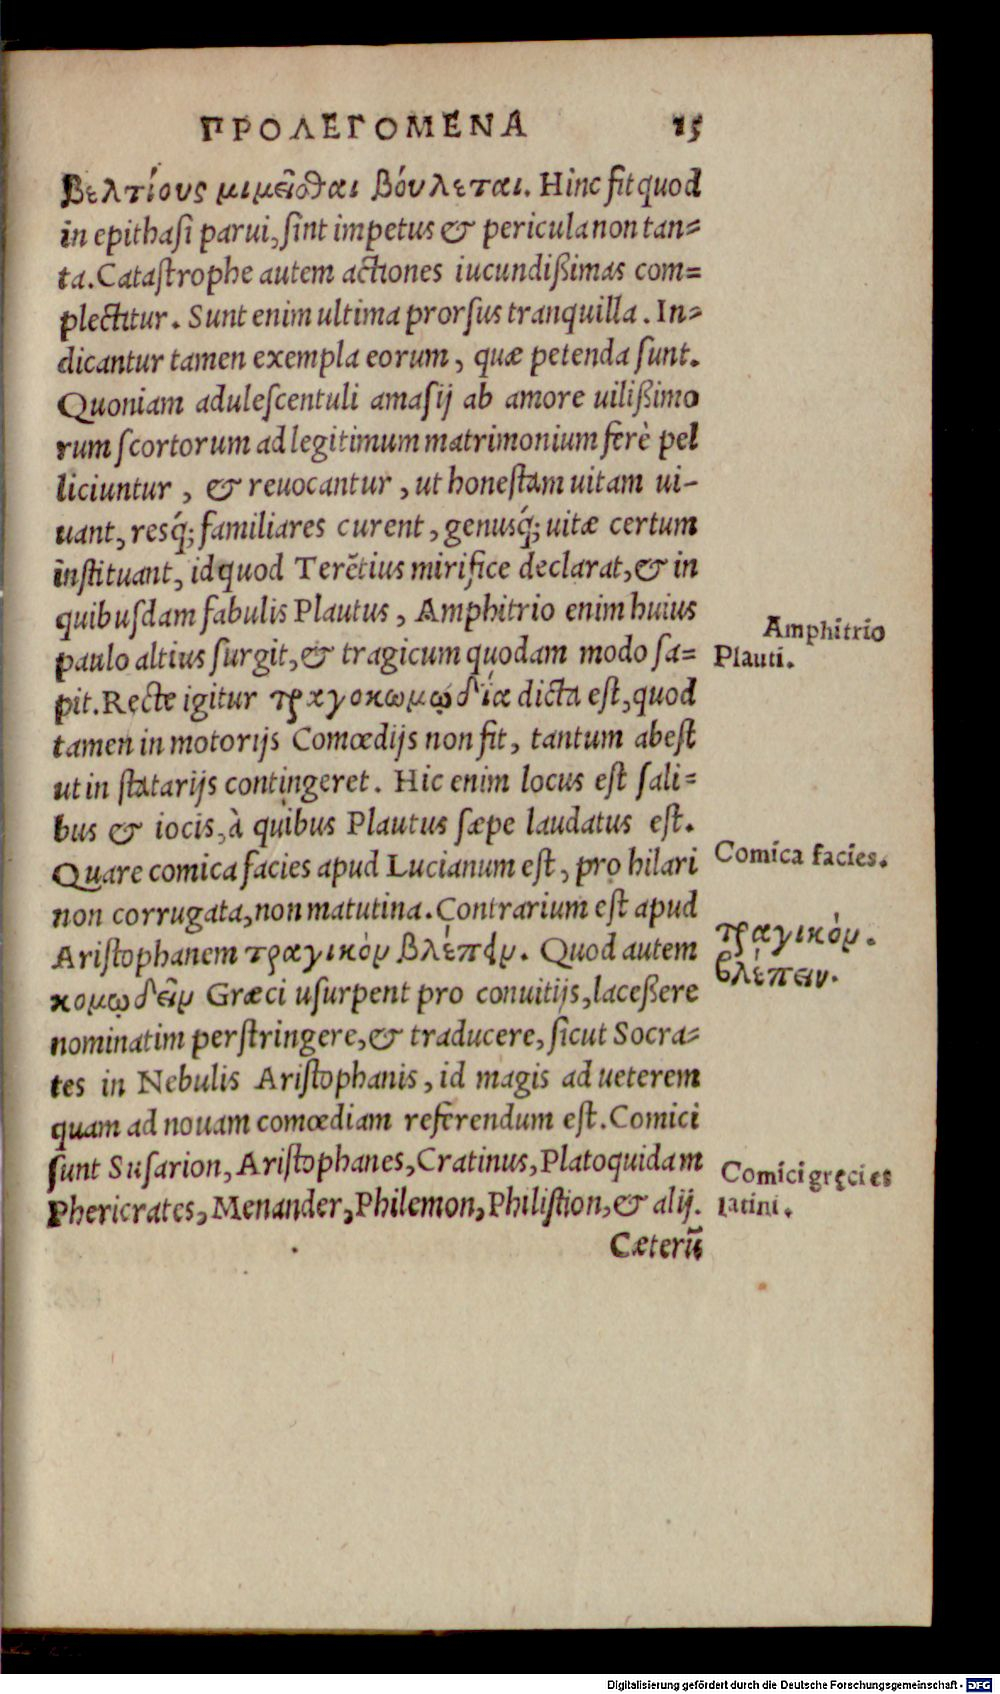 ΠΡΟΛΕΓΟΜΕΝΑ 15
βελτίους μιμεῖσθαι βόυλεται. Hinc fit quod
in epithasi parui, sint impetus & pericula non tan=
ta. Catastrophe autem actiones iucundißimas com=
plectitur. Sunt enim ultima prorsus tranquilla. In=
dicantur tamen exempla eorum, quæ petenda sunt.
Quoniam adulescentuli amasij ab amore uilißimo
rum scortorum ad legitimum matrimonium ferè pel
liciuntur, & reuocantur, ut honestam uitam ui-
uant, resq́; familiares curent, genusq́; uitæ certum
instituant, id quod Terẽtius mirifice declarat, & in
quibusdam fabulis Plautus, Amphitrio enim huius
paulo altius surgit, & tragicum quodam modo sa=
pit. Recte igitur τραγοκωμῳδία dicta est, quod
tamen in motorijs Comœdijs non fit, tantum abest
ut in statarijs contingeret. Hic enim locus est sali=
bus & iocis, à quibus Plautus sæpe laudatus est.
Quare comica facies apud Lucianum est, pro hilari
non corrugata, non matutina. Contrarium est apud
Aristophanem τραγικὸν βλέπειν. Quod autem
κομῳδεῖν Græci usurpent pro conuitijs, laceßere
nominatim perstringere, & traducere, sicut Socra=
tes in Nebulis Aristophanis, id magis ad ueterem
quam ad nouam comœdiam referendum est. Comici
sunt Susarion, Aristophanes, Cratinus, Plato quidam
Phericrates, Menander, Philemon, Philistion, & alij.
Cæterũ
Amphitrio
Plauti.
Comica facies.
τραγικὸν.
βλέπειν.
Comici gręci es
latini.
Digitalisierung gefördert durch die Deutsche Forschungsgemeinschaft - DFG